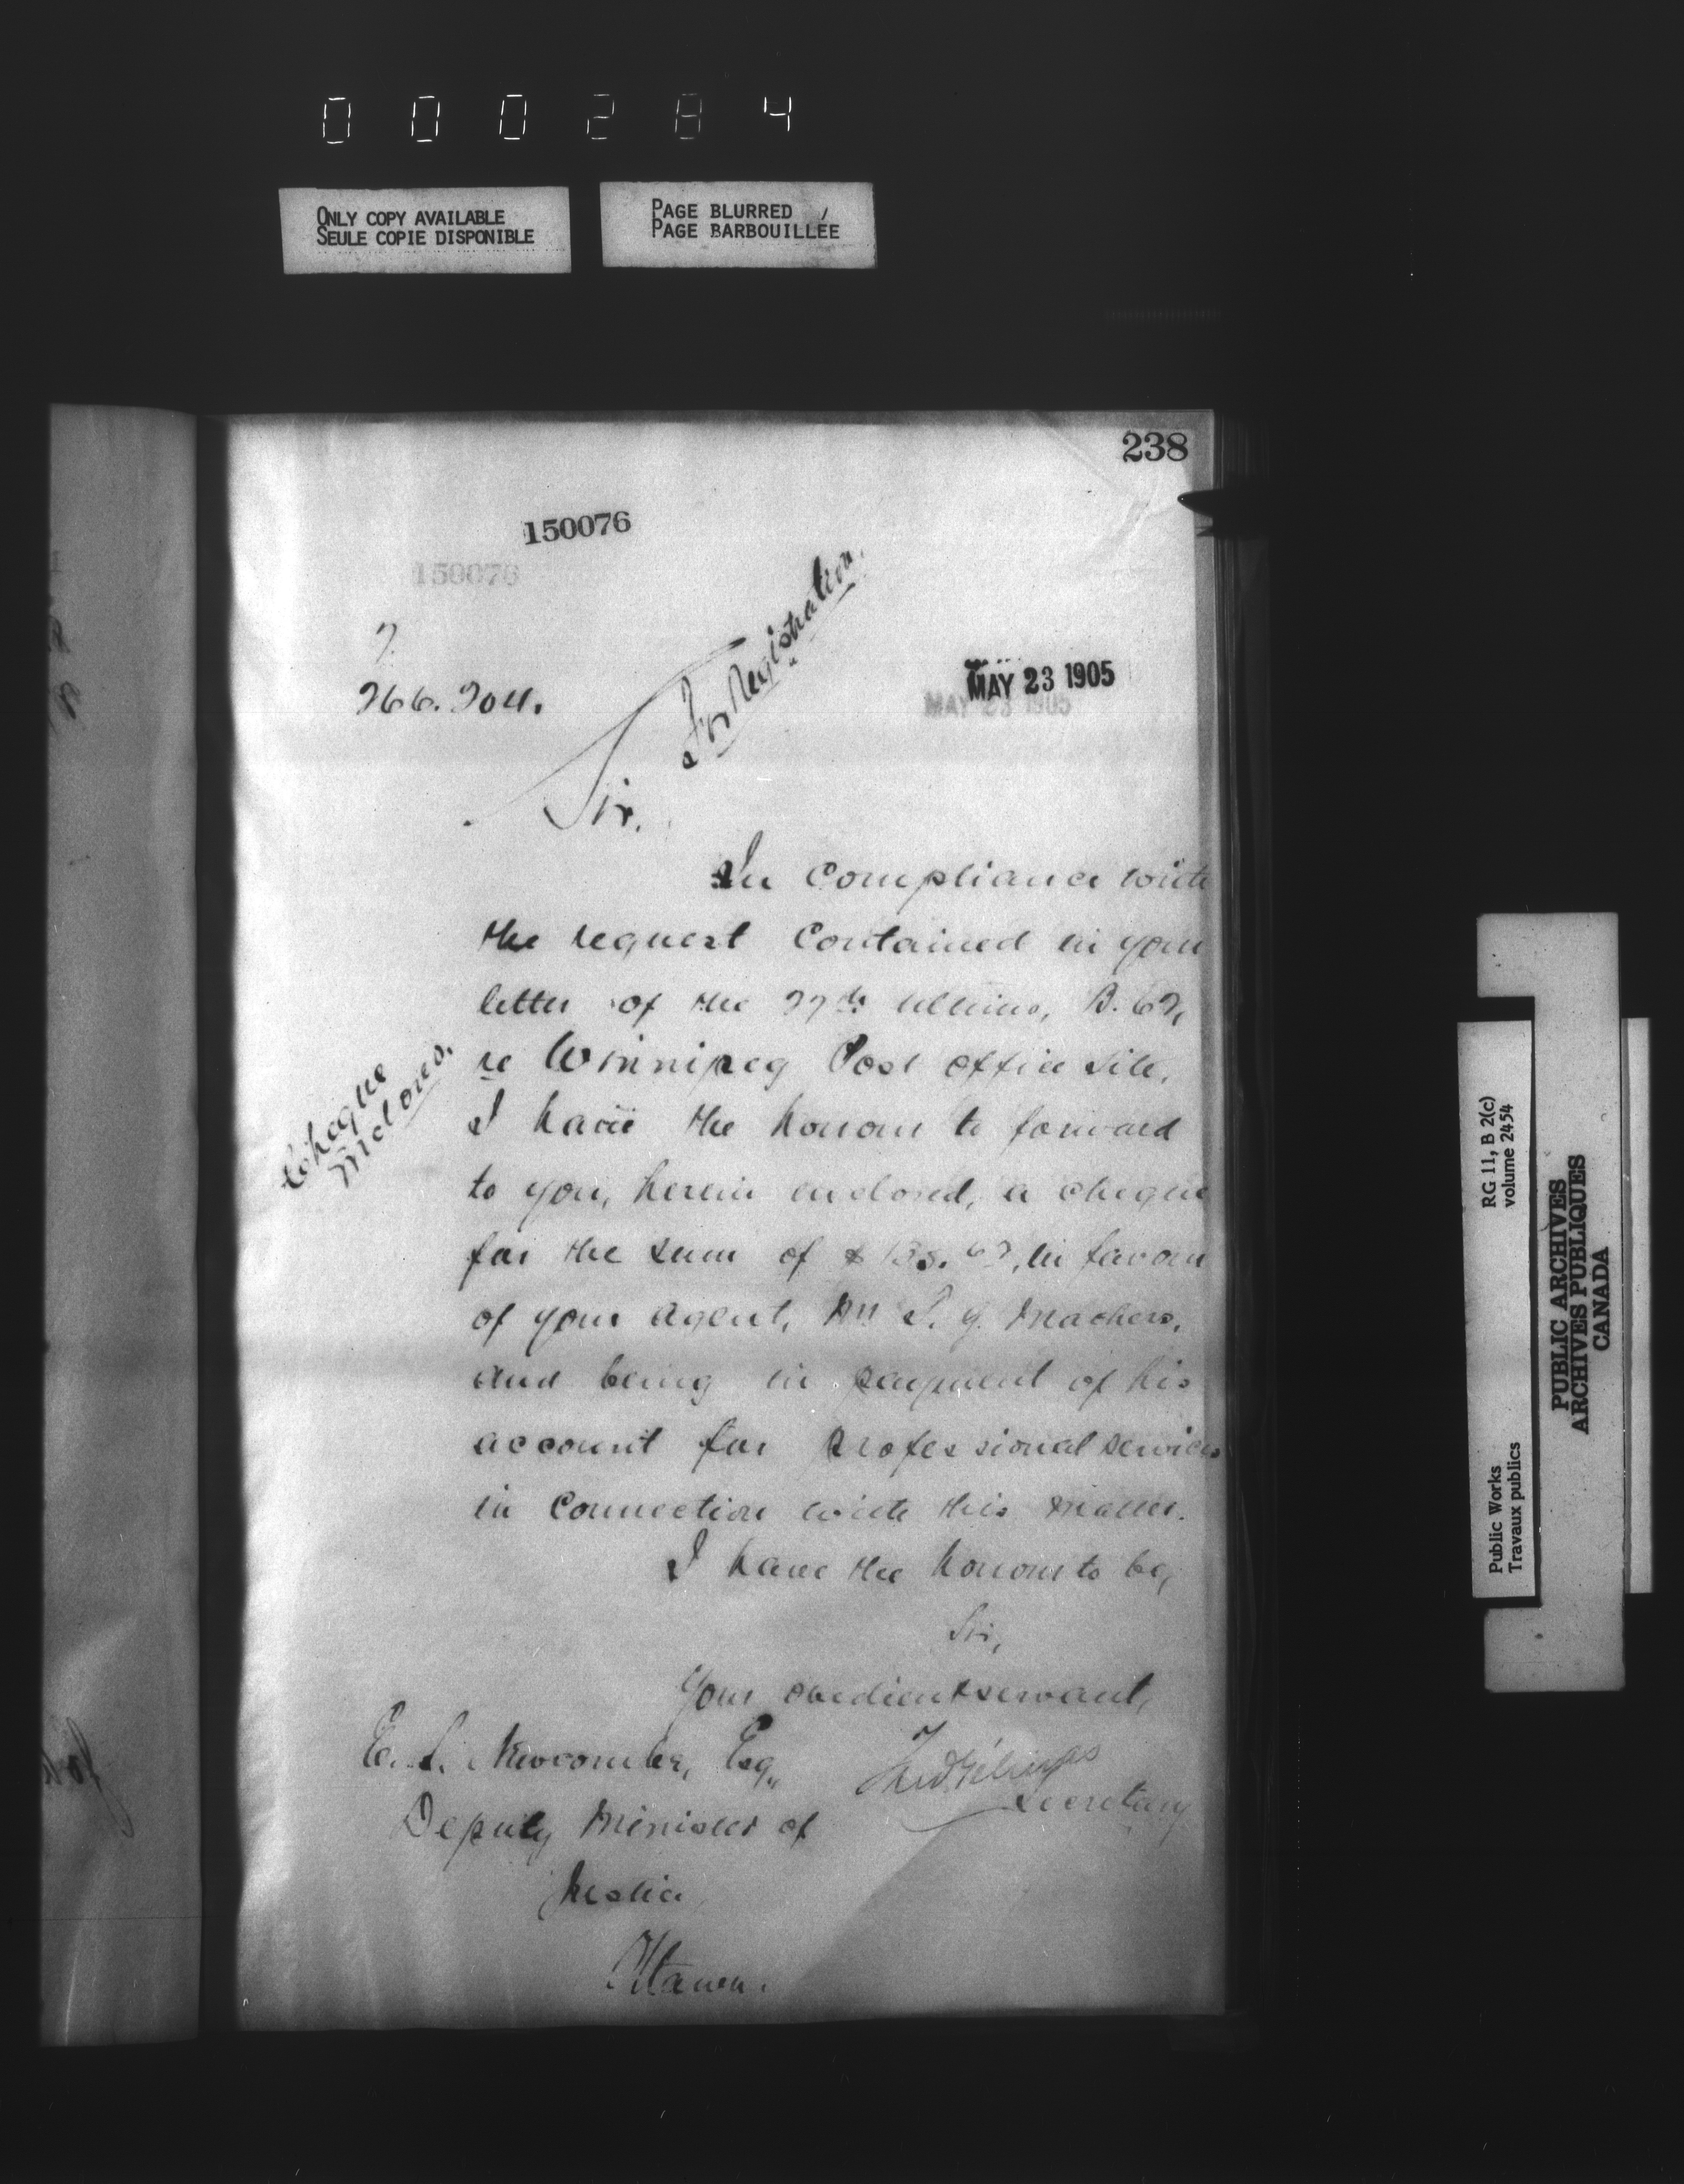 000284
ONLY COPY AVAILABLE
SEULE COPIE DISPONIBLE
PAGE BLURRED
PAGE BARBOUILLÉE
238
150076
150076
266.704.
For Registration.
MAY 23 1905
MAY 23 1905
Sir.
In compliance with
the request contained in your
letter of the 27th ultimo, B. 62,
re Winnipeg Post office site,
I have the honour to forward
to you, herein enclosed, a cheque
Cheque
Enclosed.
for the sum of $
in favour
of your agent, Mr
Machers,
and being in payment of his
account for professional services
in connection with this matter.
I have the honour to be,
Sir,
Your obedient servant,
E. L. Newcombe, Esq.,
Fred Gélinas
Secretary
Deputy Minister of
Justice,
Ottawa.
RG 11, B 2(c)
volume 2454
Public Works
Travaux publics
PUBLIC ARCHIVES
ARCHIVES PUBLIQUES
CANADA